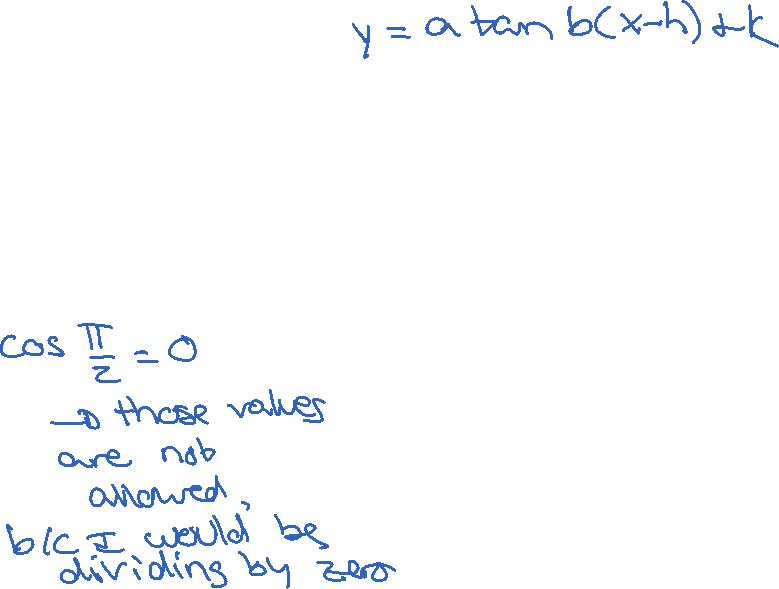 y = a tan b(x-h) + k
cos π/2 = 0
→ those values
are not
allowed,
b/c I would be
dividing by zero